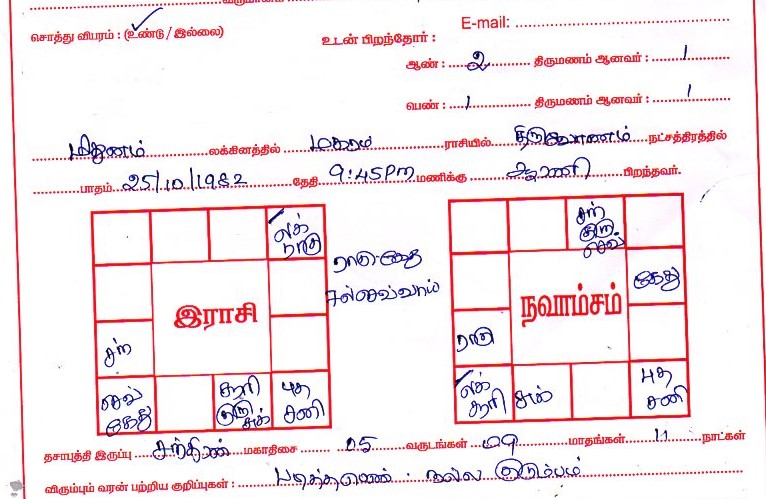 சொத்து விபரம் : (உண்டு / இல்லை)
E-mail:
உடன் பிறந்தோர் :
ஆண் : 2 திருமணம் ஆனவர் : 1
பெண் : 1 திருமணம் ஆனவர் : 1
மிதுனம் லக்கினத்தில் மகரம் ராசியில் திருவோணம் நட்சத்திரத்தில்
பாதம் 25/10/1982 தேதி 9:45Pm மணிக்கு பிறந்தவர்.
லக்
ராகு
சந்
செவ்
கேது
சூரி
குரு
சுக்
புத
சனி
இராசி
சந்
குரு
செவ்
கேது
ராகு
லக்
சூரி
சுக்
புத
சனி
நவாம்சம்
தசாபுத்தி இருப்பு சந்திரன் மகாதிசை 05 வருடங்கள் 09 மாதங்கள் 11 நாட்கள்
விரும்பும் வரன் பற்றிய குறிப்புகள் : நல்ல குடும்பம்